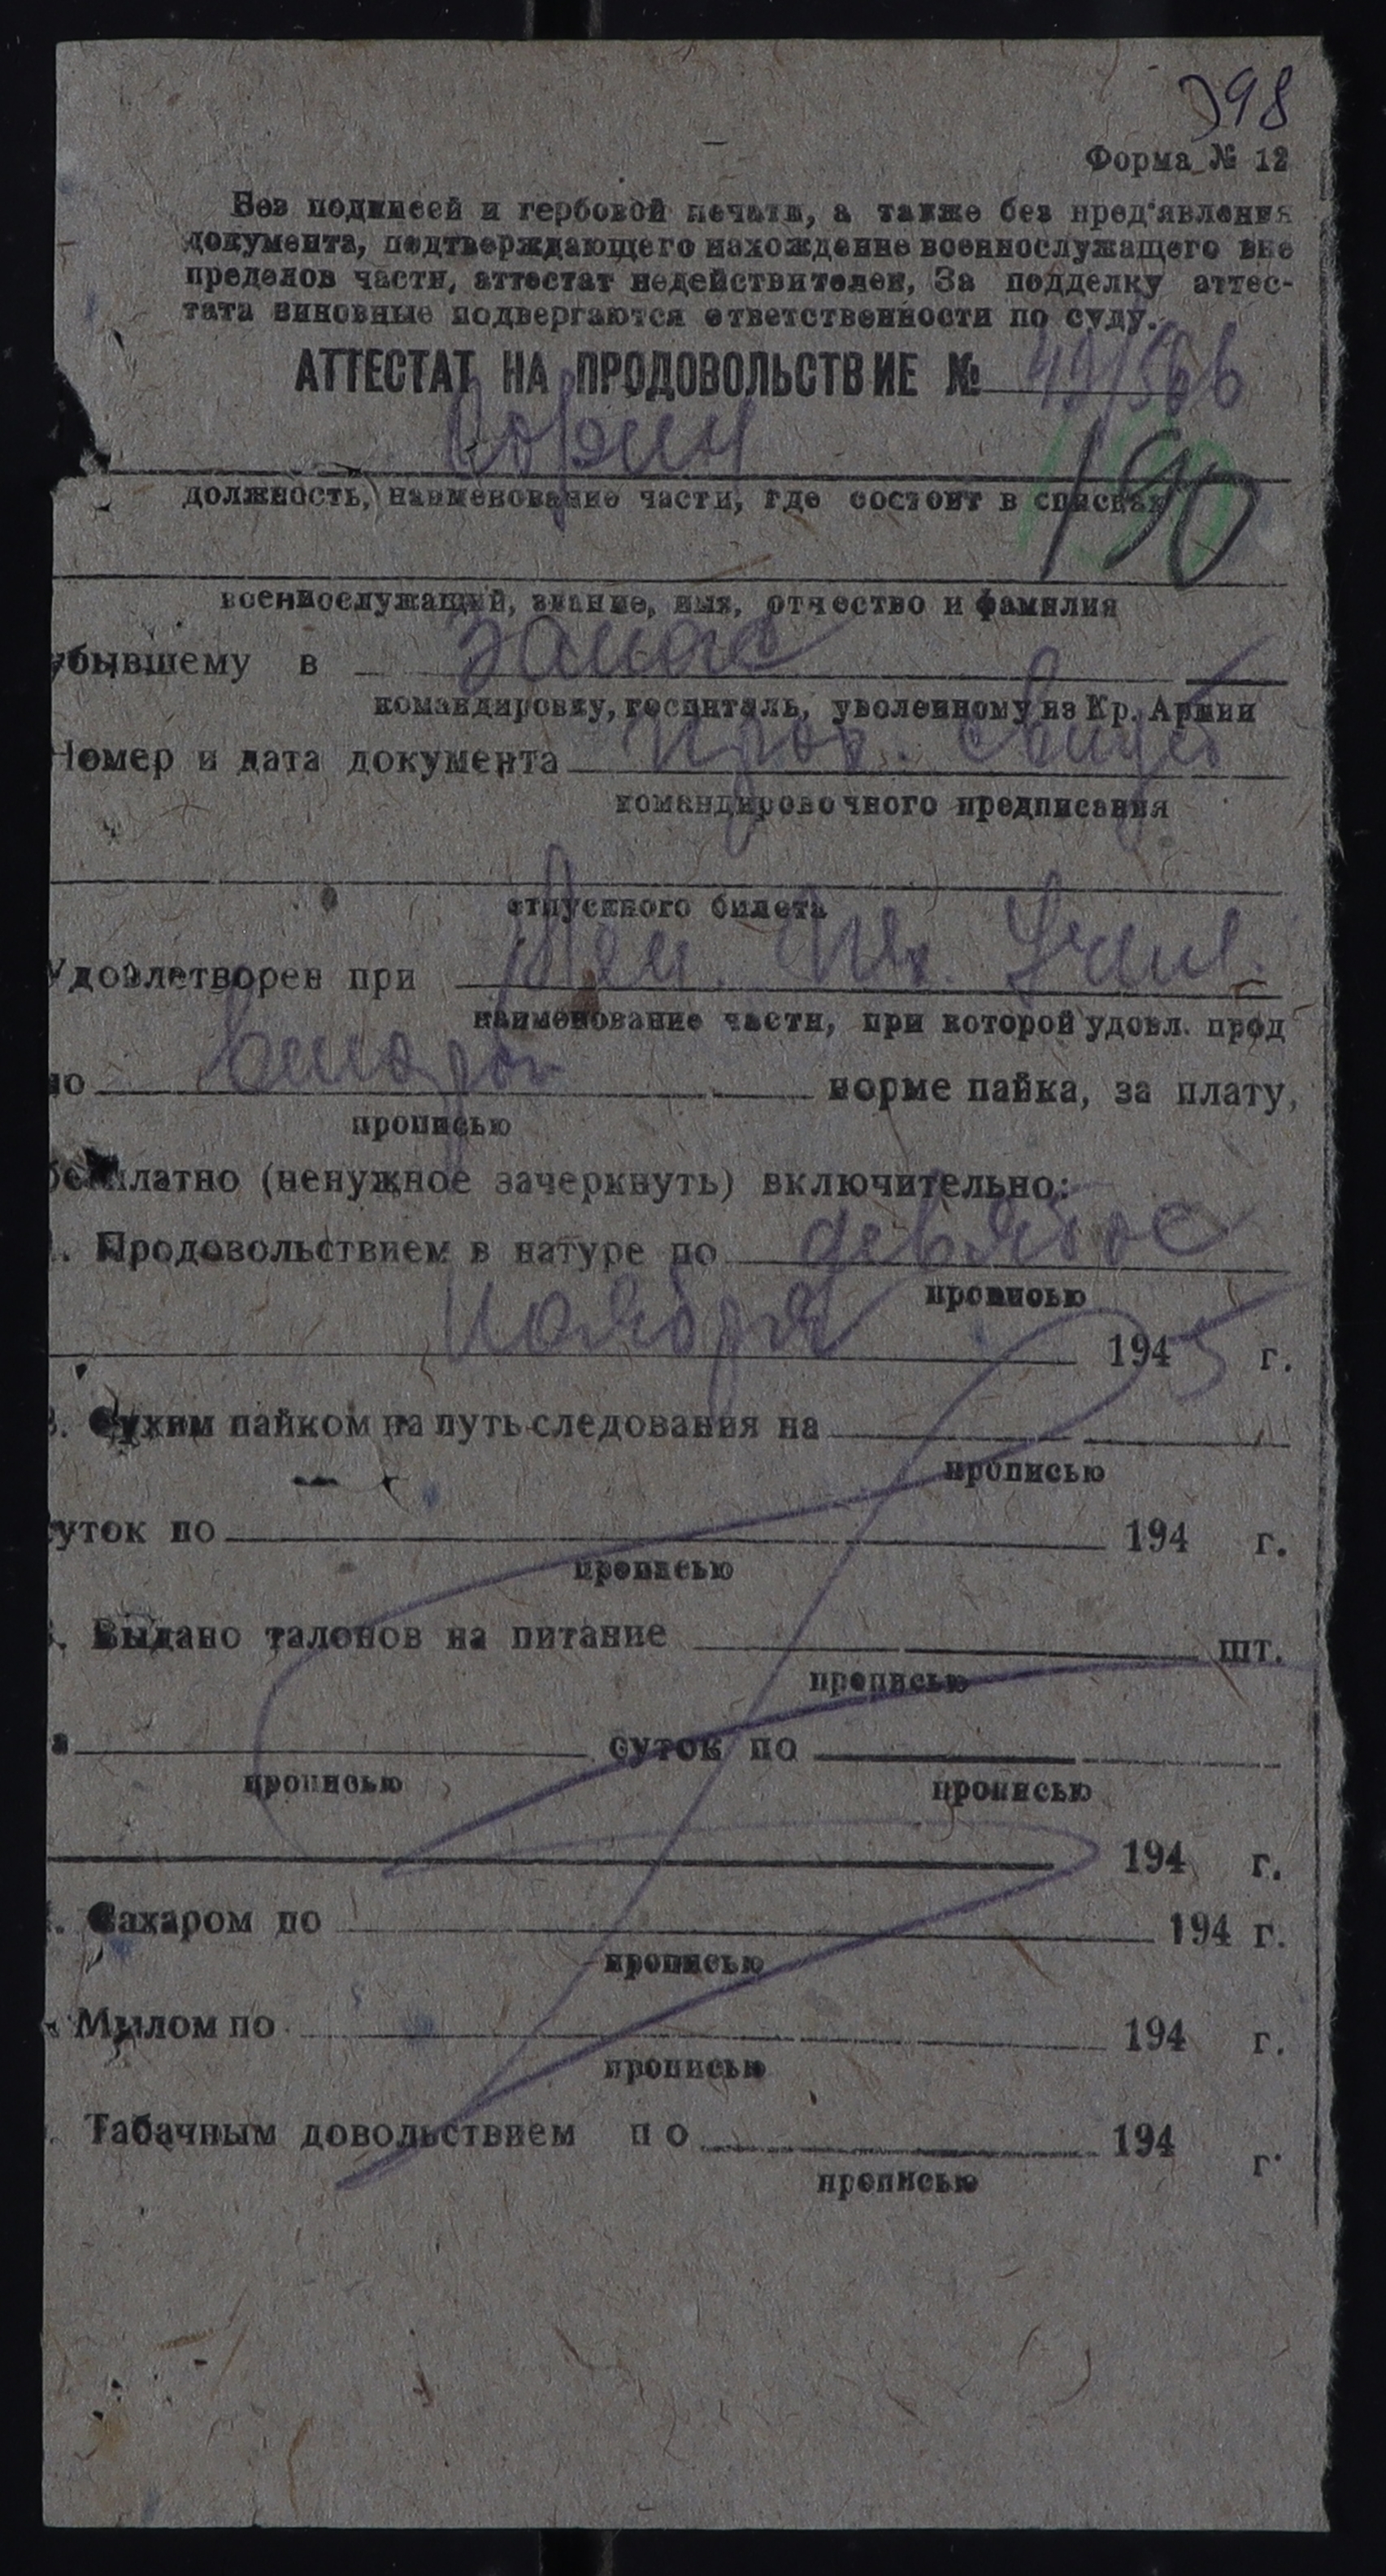 398
Форма № 12
Без подписей и гербовой печати, а также без пред'явления
документа, подтверждающего нахождение военнослужащего вне
пределов части, аттестат недействителен, За подделку аттес-
тата виновные подвергаются ответственности по суду.
АТТЕСТАТ НА ПРОДОВОЛЬСТВИЕ №
190
должность, наименование части, где состоит в списках
военнослужащий, звание, имя, отчество и фамилия
убывшему в запас
командировку, госпиталь, уволенному из Кр. Армии
Номер и дата документа
командировочного предписания
отпускного билета
Удовлетворен при
наименование части, при которой удовл. прод
по второй норме пайка, за плату,
прописью
бесплатно (ненужное зачеркнуть) включительно:
. Продовольствием в натуре по девятое
прописью
ноября 1945 г.
. Сухим пайком на путь следования на
прописью
суток по 194 г.
прописью
. Выдано талонов на питание шт.
прописью
а суток по
прописью прописью
194 г.
. Сахаром по 194 г.
прописью
Мылом по 194 г.
прописью
. Табачным довольствием по 194 г.
прописью